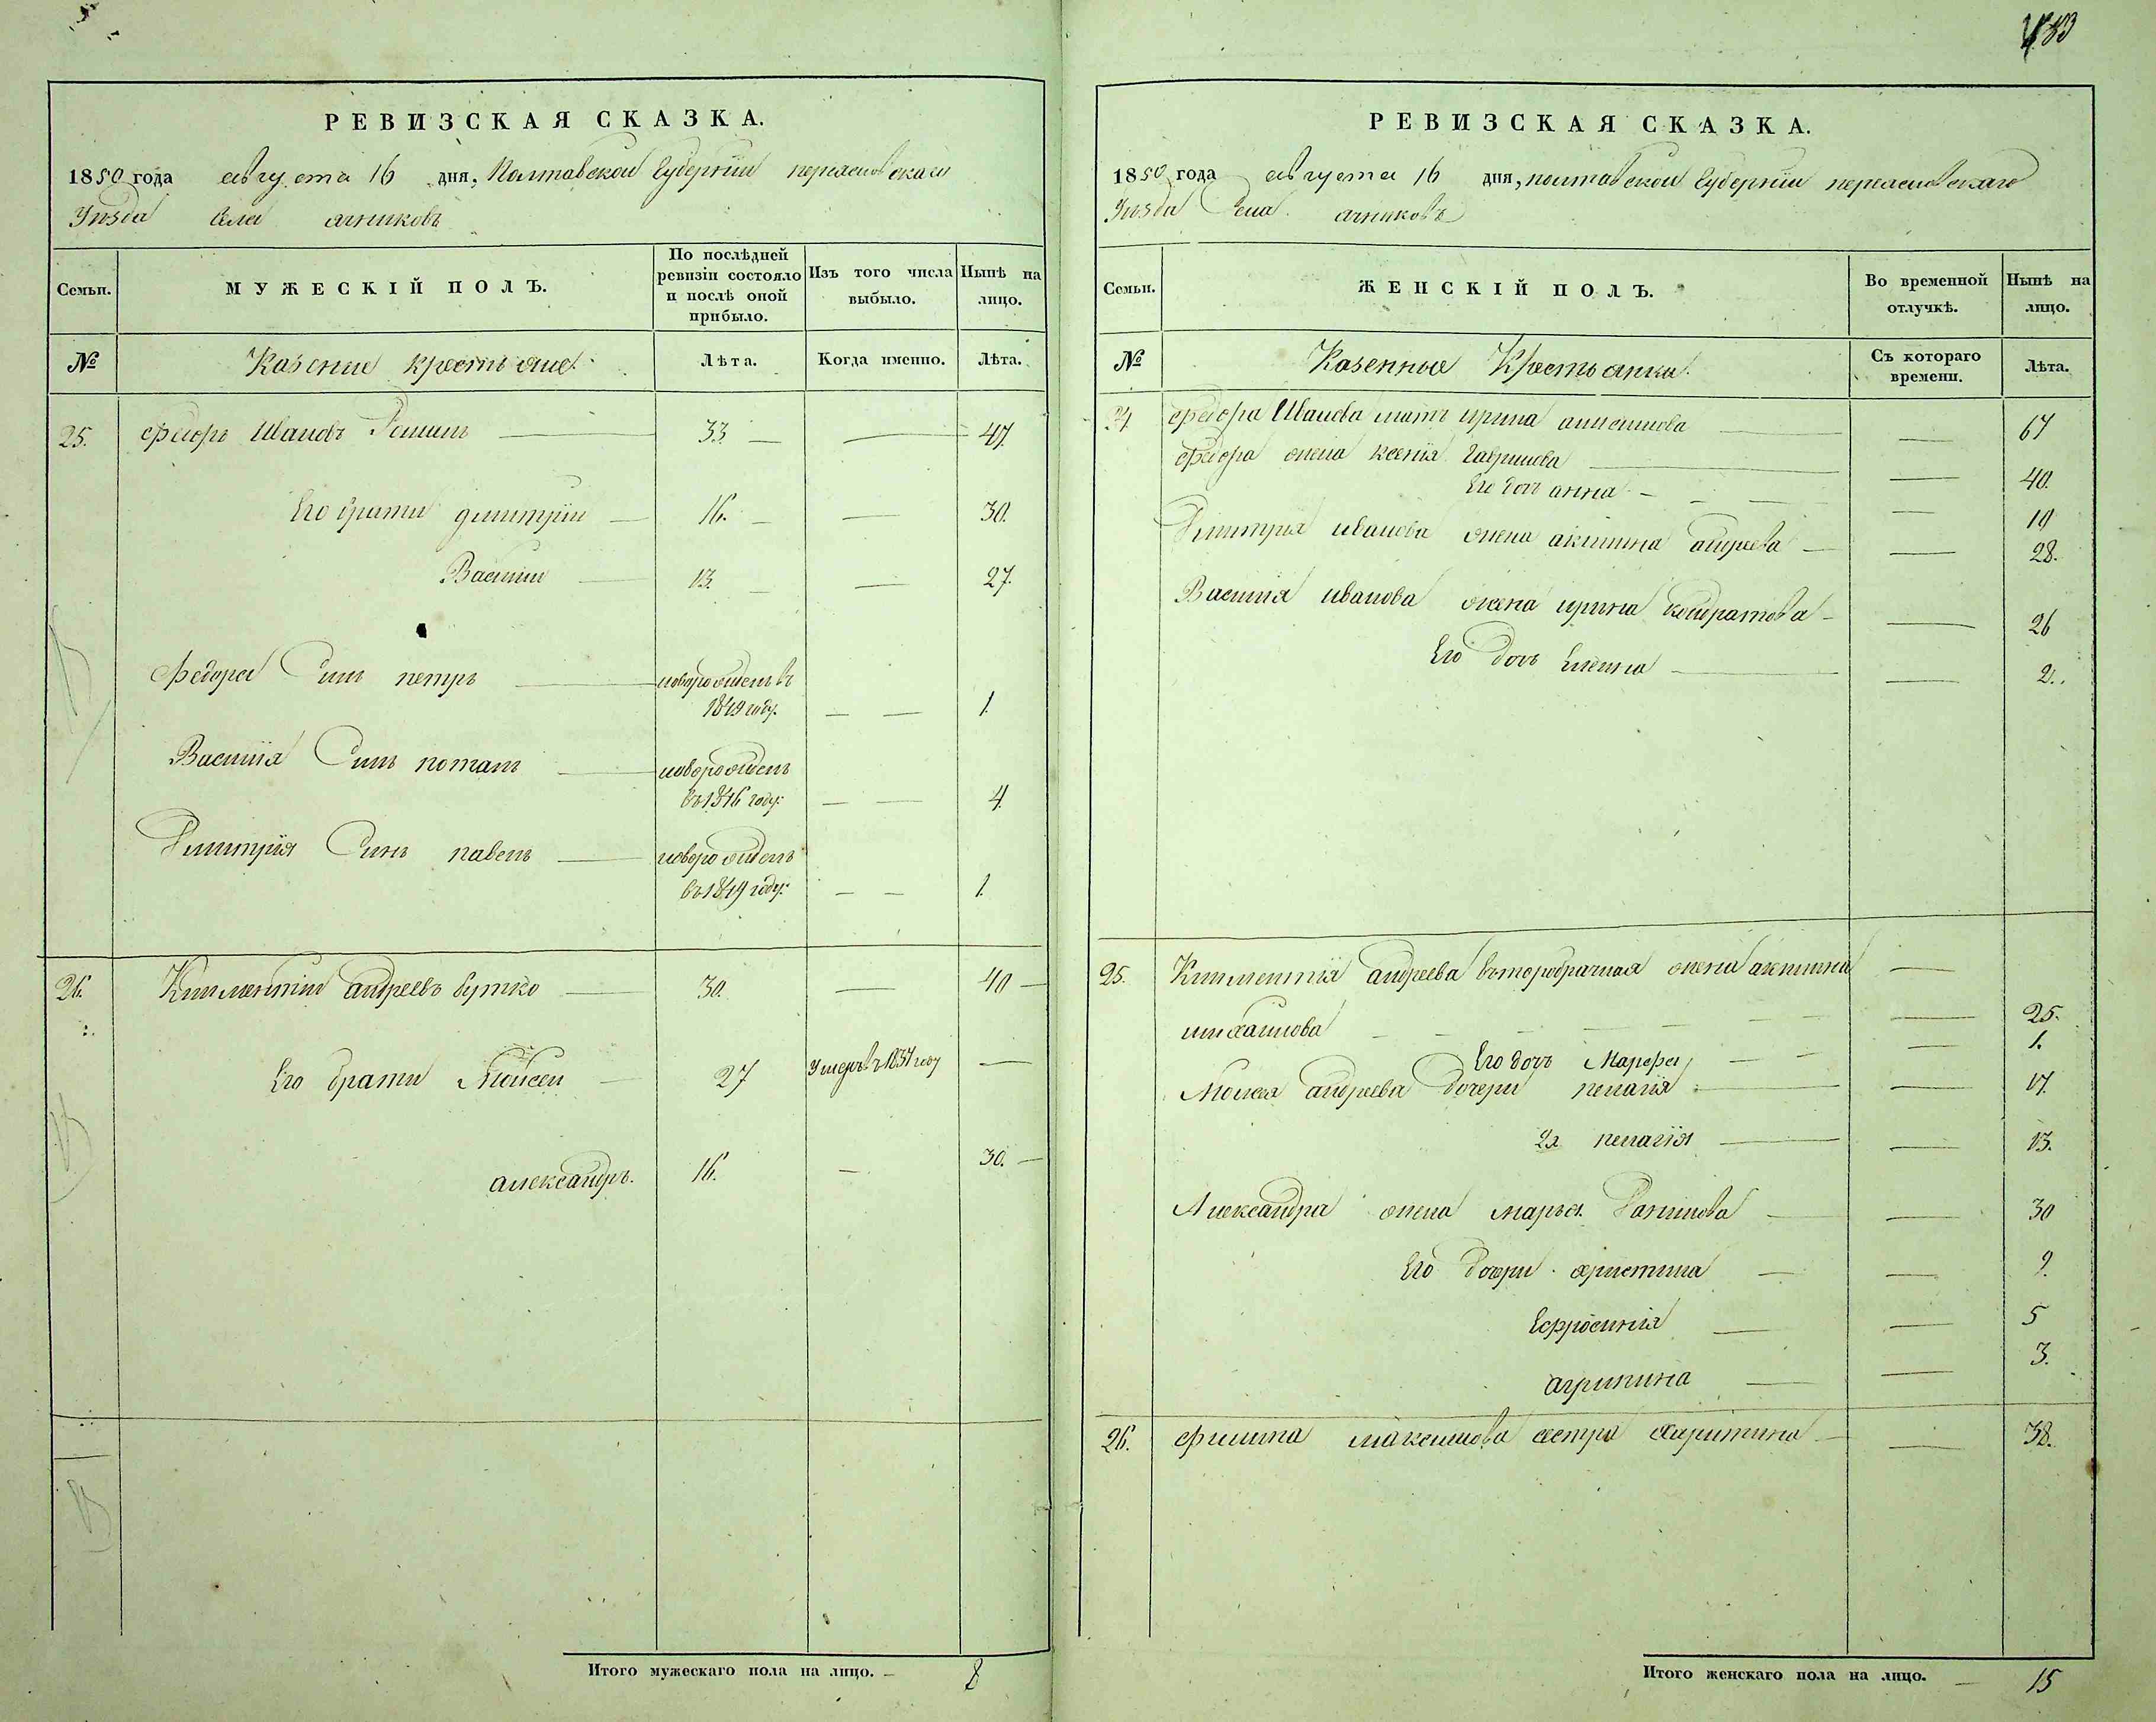 483
РЕВИЗСКАЯ СКАЗКА.
1850 года августа 16 дня, Полтавской Губернiи переяславскаго
Уѣзда Села ячниковъ
Семьи.
МУЖЕСКІЙ ПОЛЪ.
По послѣдней ревизіи состояло и послѣ оной прибыло.
Изъ того числа выбыло.
Нынѣ на лицо.
№
Казенние крестьяне.
Лѣта.
Когда именно.
Лѣта.
25. Федоръ Ивановъ 33 47.
Его брати дмитрiи 16. 30.
Василiи 13. 27.
Федора Синъ петръ новорожденъ въ
1849 году. 1.
Василiя Синъ потапъ новорожденъ
въ 1846 году. 4.
Димитрiя Синъ павелъ новорожденъ
въ 1849 году. 1.
26. Климентiи андреевъ бутко 30. 40
Его брати Моисеи 27 Умеръ въ 1837 году
александръ. 16. 30.
Итого мужескаго пола на лицо. 8
РЕВИЗСКАЯ СКАЗКА.
1850 года августа 16 дня, полтавской Губернiи переяславскаго
Уѣзда Села ячниковъ
Семьи.
ЖЕНСКІЙ ПОЛЪ.
Во временной отлучкѣ.
Нынѣ на лицо.
№
Казенные Крестьянки.
Съ котораго времени.
Лѣта.
24 Федора Иванова мать ирина 67
Федора жена ксенiя Гаврилова 40.
Его дочь анна 10
Димитрiя иванова жена акилина андреева 28.
Василiя иванова жена ирина кондратова 26
Его дочь Елена 2.
25. Климентiя андреева второбрачная жена акилина
михайлова 25.
Его дочь Марфа 1.
Моисея андреева дочери пелагiя 17.
2я пелагiя 13.
Александра жена марья Данилова 30
Его дочери христина 9.
Ефросинiя 5
агрипина 3.
26. Филипа максимова сестра харитина 38.
Итого женскаго пола на лицо. 15